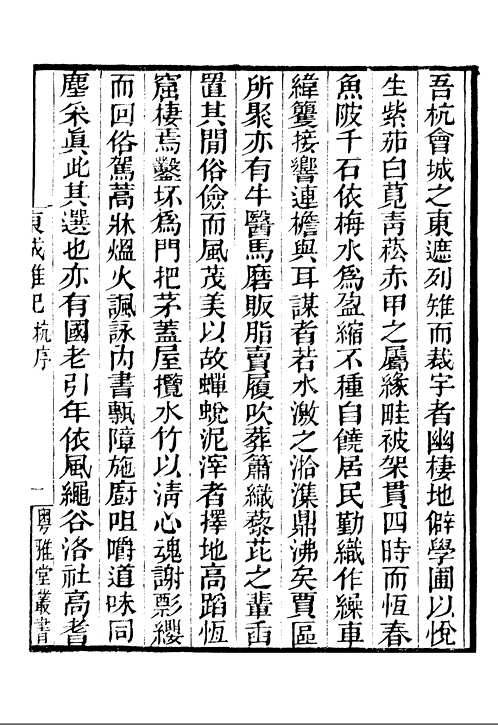 吾杭會城之東遮列雉而裁宇者幽棲地僻學圃以悅
生紫茄白莧靑菘赤甲之屬緣畦被架貫四時而恆春
魚陂千石依梅水爲盈縮不種自饒居民勤織作繰車
緯籆接響連檐與耳謀者若水激之滀潗鼎沸矣賈區
所聚亦有牛醫馬磨販脂賣履吹葬簫織藜芘之輩臿
置其閒俗儉而風茂美以故蟬蛻泥滓者擇地高蹈恆
窟棲焉鑿坏爲門把茅蓋屋攬水竹以淸心魂謝影纓
而回俗駕蒿牀熅火諷詠內書甎障施廚咀嚼道味同
塵采眞此其選也亦有國老引年依風繩谷洛社高耆
東城雜記 杭序
一
粤雅堂叢書